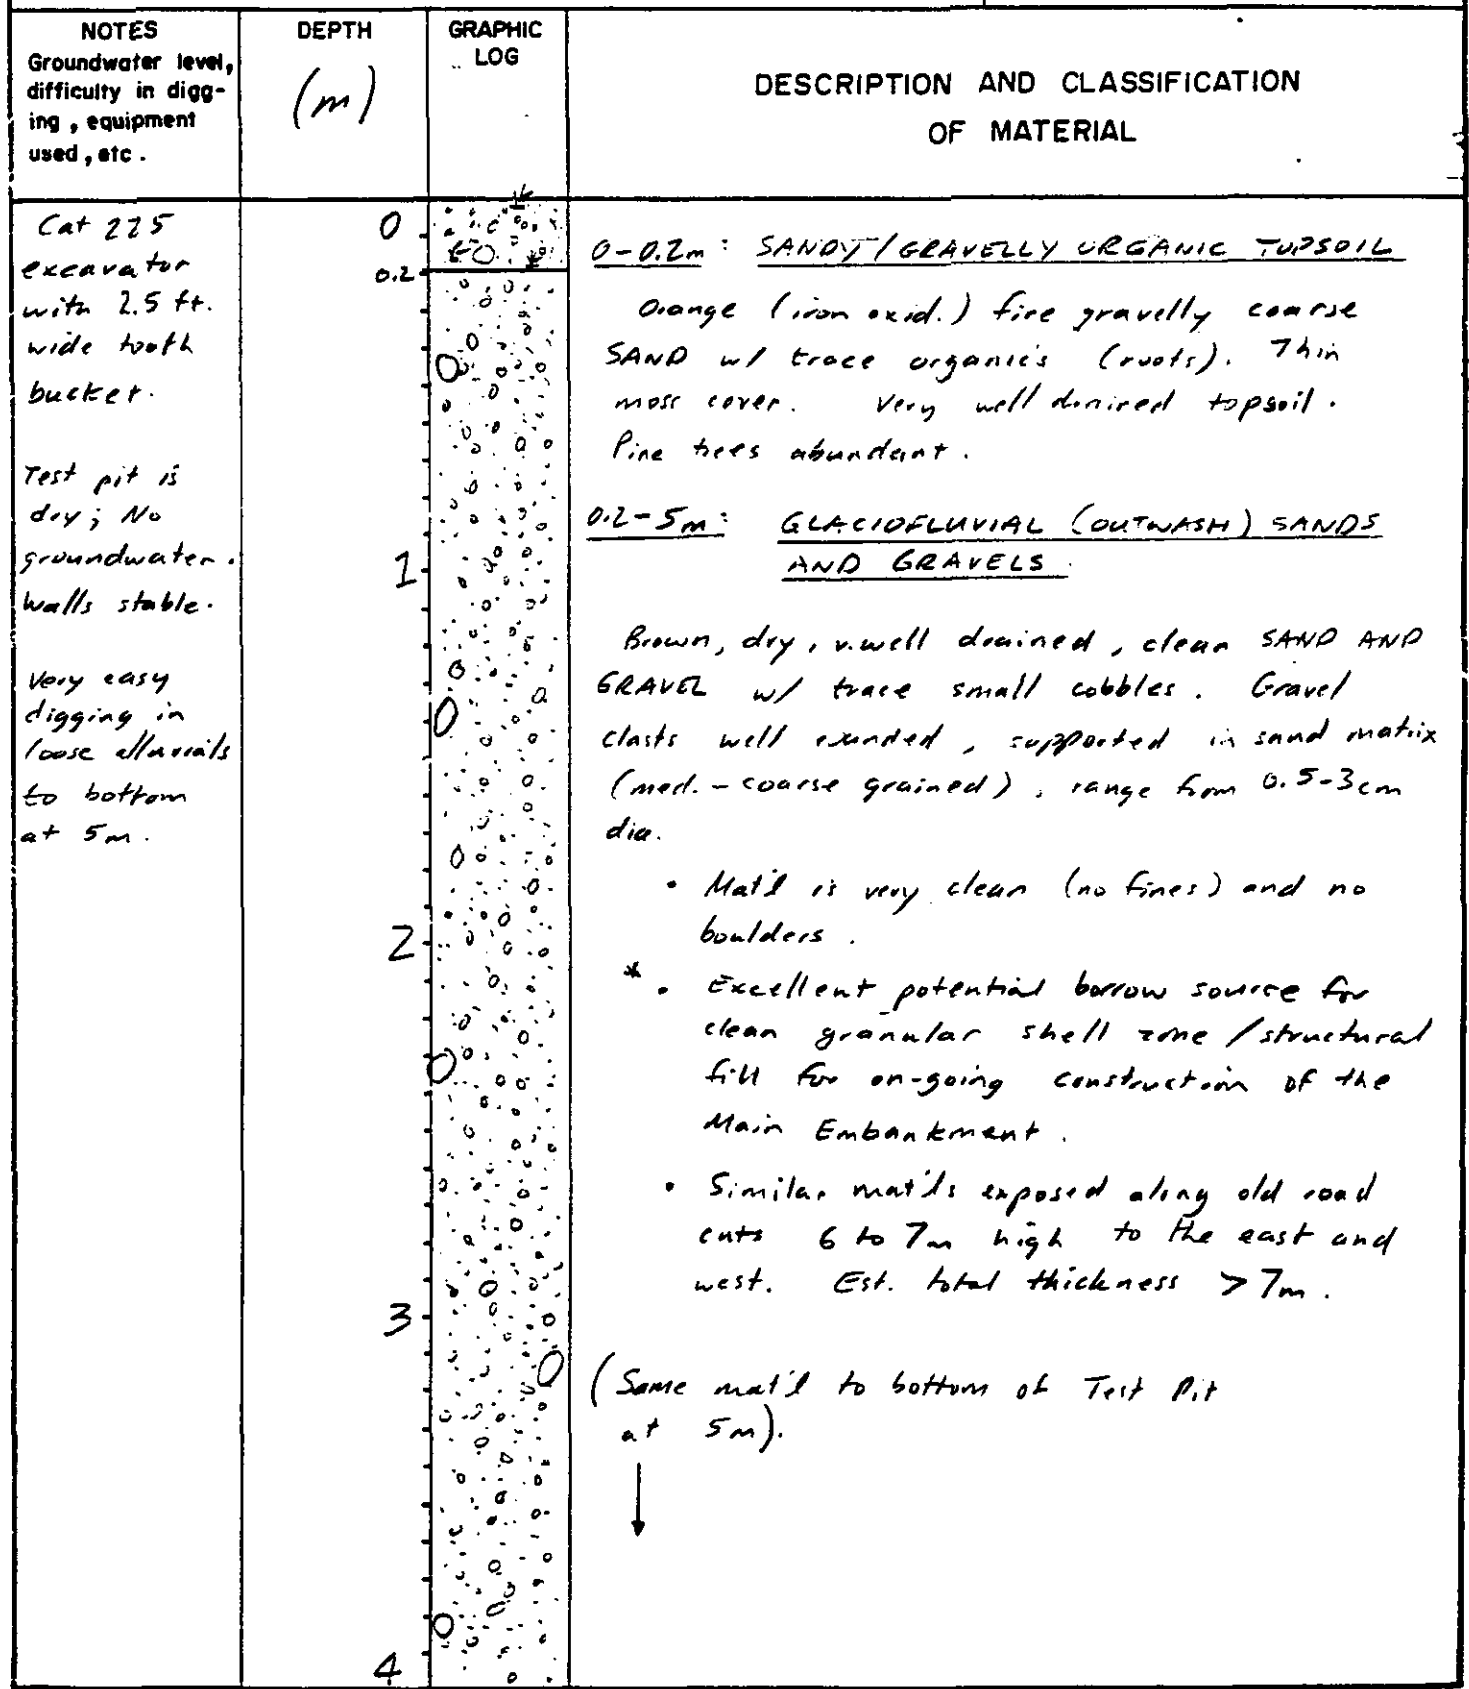 NOTES
Groundwater level,
difficulty in digg-
ing, equipment
used, etc.
DEPTH
(m)
GRAPHIC
LOG
DESCRIPTION AND CLASSIFICATION
OF MATERIAL
Cat 225
excavator
with 2.5 ft.
wide tooth
bucket.
Test pit is
dry; No
groundwater.
Walls stable.
Very easy
digging in
loose alluvials
to bottom
at 5m.
0
0.2
1
2
3
4
0-0.2m: SANDY/GRAVELLY ORGANIC TOPSOIL
Orange (iron oxid.) fine gravelly coarse
SAND w/ trace organics (roots). Thin
moss cover. Very well drained topsoil.
Pine trees abundant.
0.2-5m: GLACIOFLUVIAL (OUTWASH) SANDS
AND GRAVELS.
Brown, dry, v. well drained, clean SAND AND
GRAVEL w/ trace small cobbles. Gravel
clasts well rounded, supported in sand matrix
(med.-coarse grained), range from 0.5-3cm
dia.
• Mat'l is very clean (no fines) and no
boulders.
* • Excellent potential borrow source for
clean granular shell zone/structural
fill for on-going construction of the
Main Embankment.
• Similar mat'ls exposed along old road
cuts 6 to 7m high to the east and
west. Est. total thickness >7m.
(Same mat'l to bottom of Test Pit
at 5m).